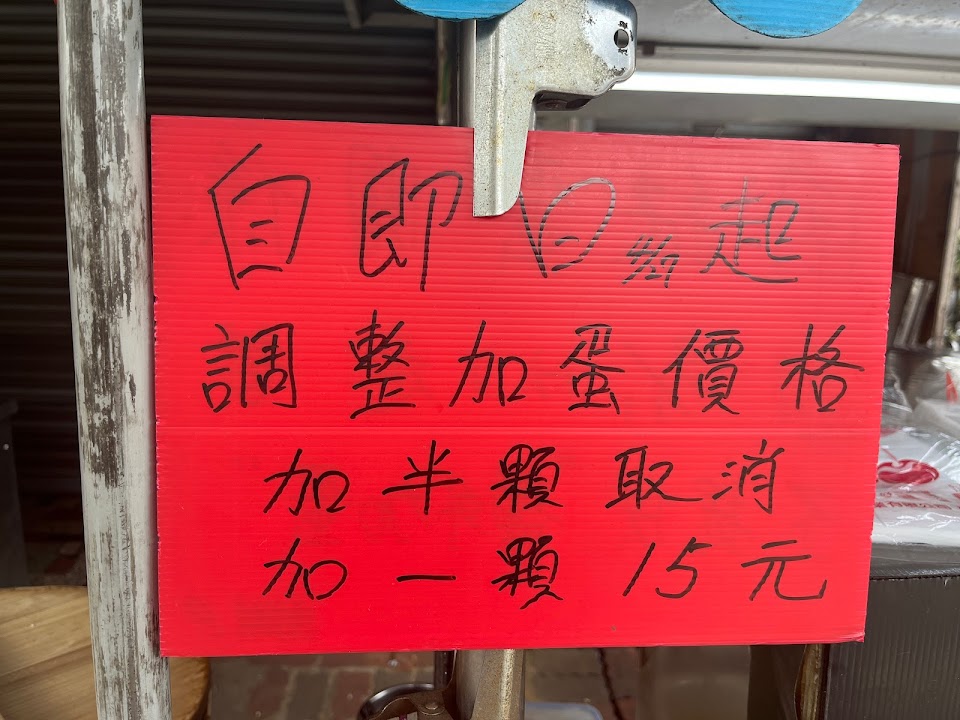 自即日4/27起
調整加蛋價格
加半顆取消
加一顆15元